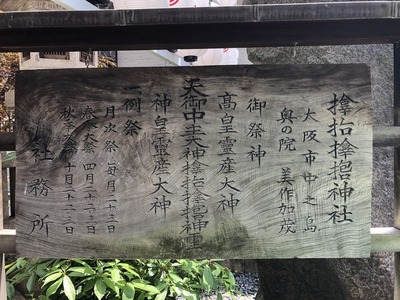 神社
大阪市中之島
奥の院 美作加茂
御祭神
高皇霊産大神
天御中主大神
神皇霊産大神
一例祭
月次祭 毎月二十三日
春季大祭 四月二十三日
秋季大祭 十月二十三日
社務所